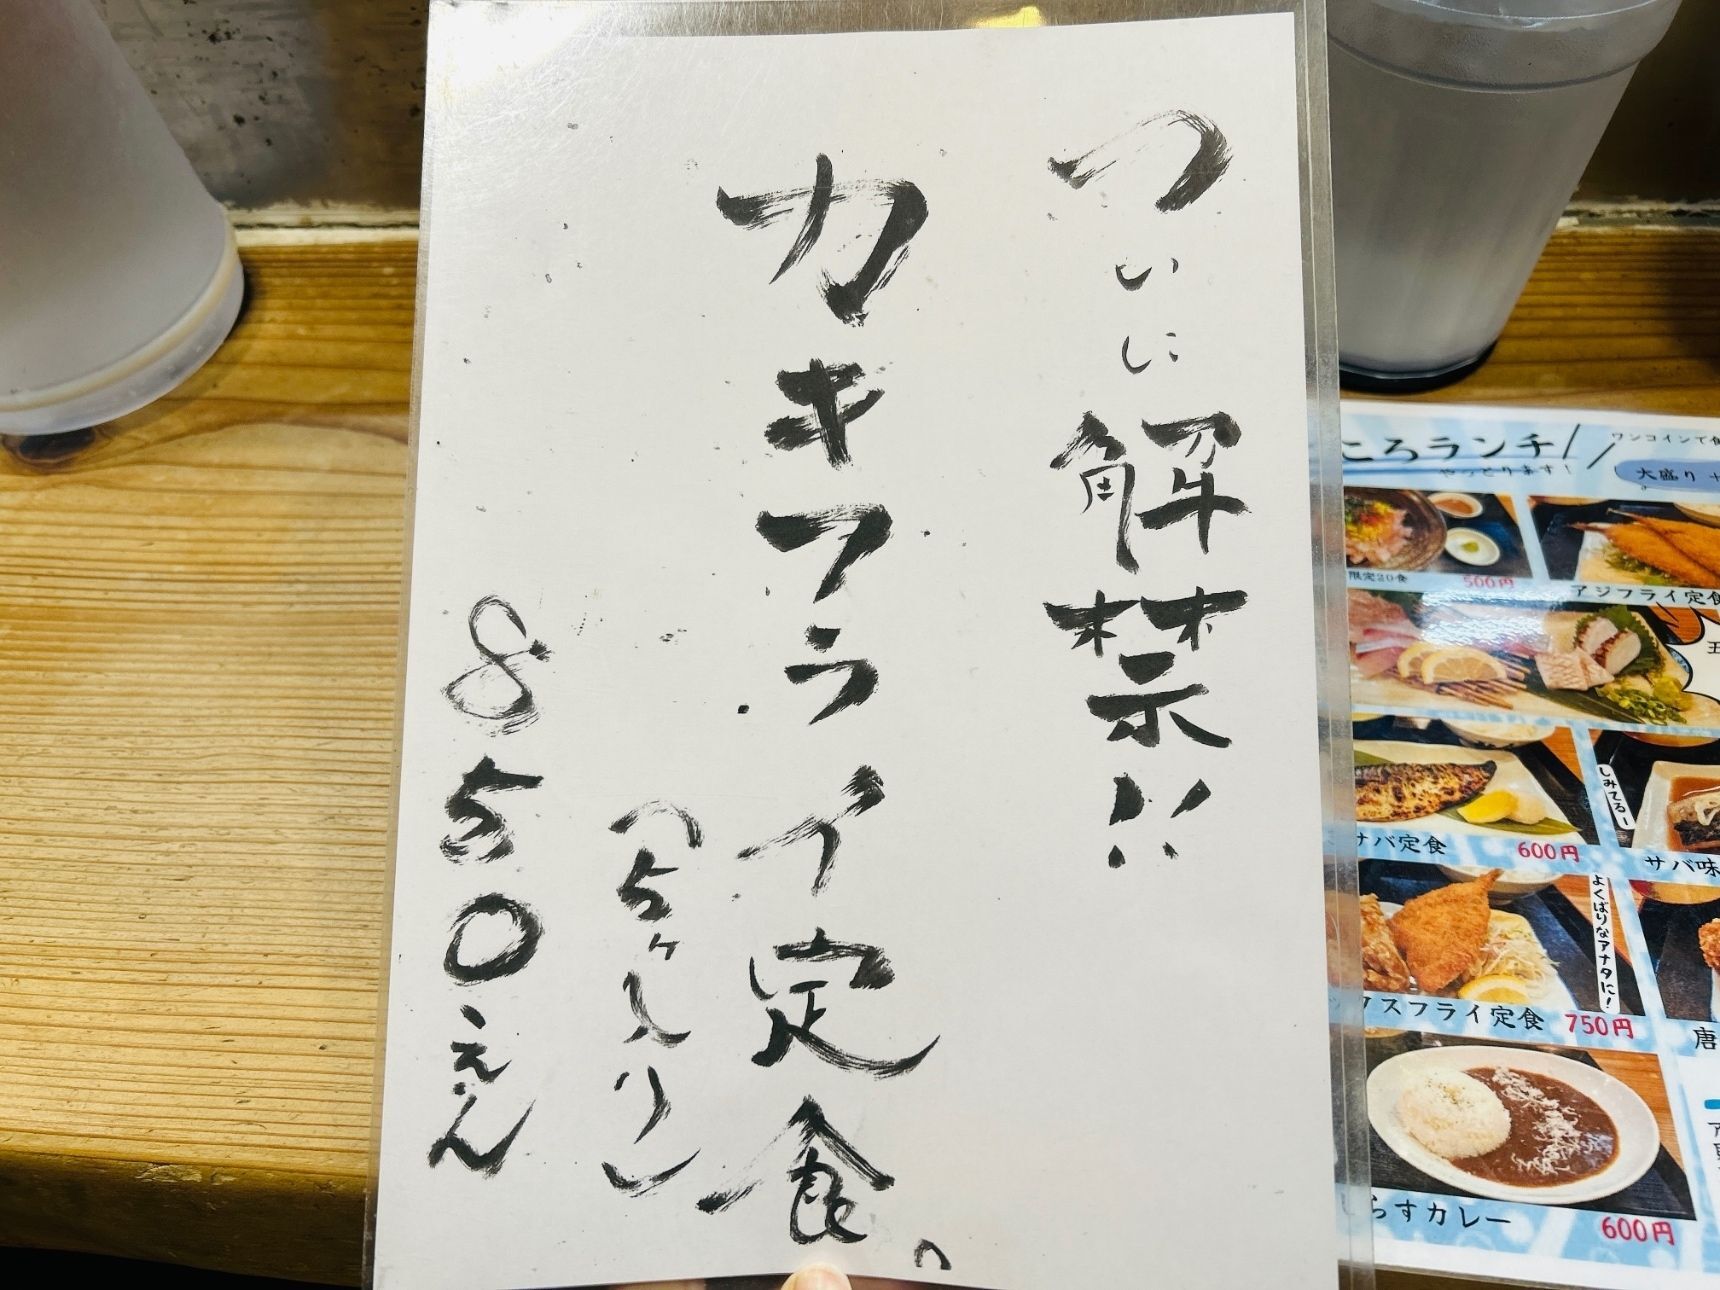 ついに解禁!!
カキフライ定食。
(5ヶ入り)
850えん
ころランチ
やっとります!
ワンコインで
大盛り
限定20食
500円
アジフライ定食
サバ定食
600円
しみてるー
サバ味
よくばりなアナタに!
クスフライ定食
750円
唐
らすカレー
600円